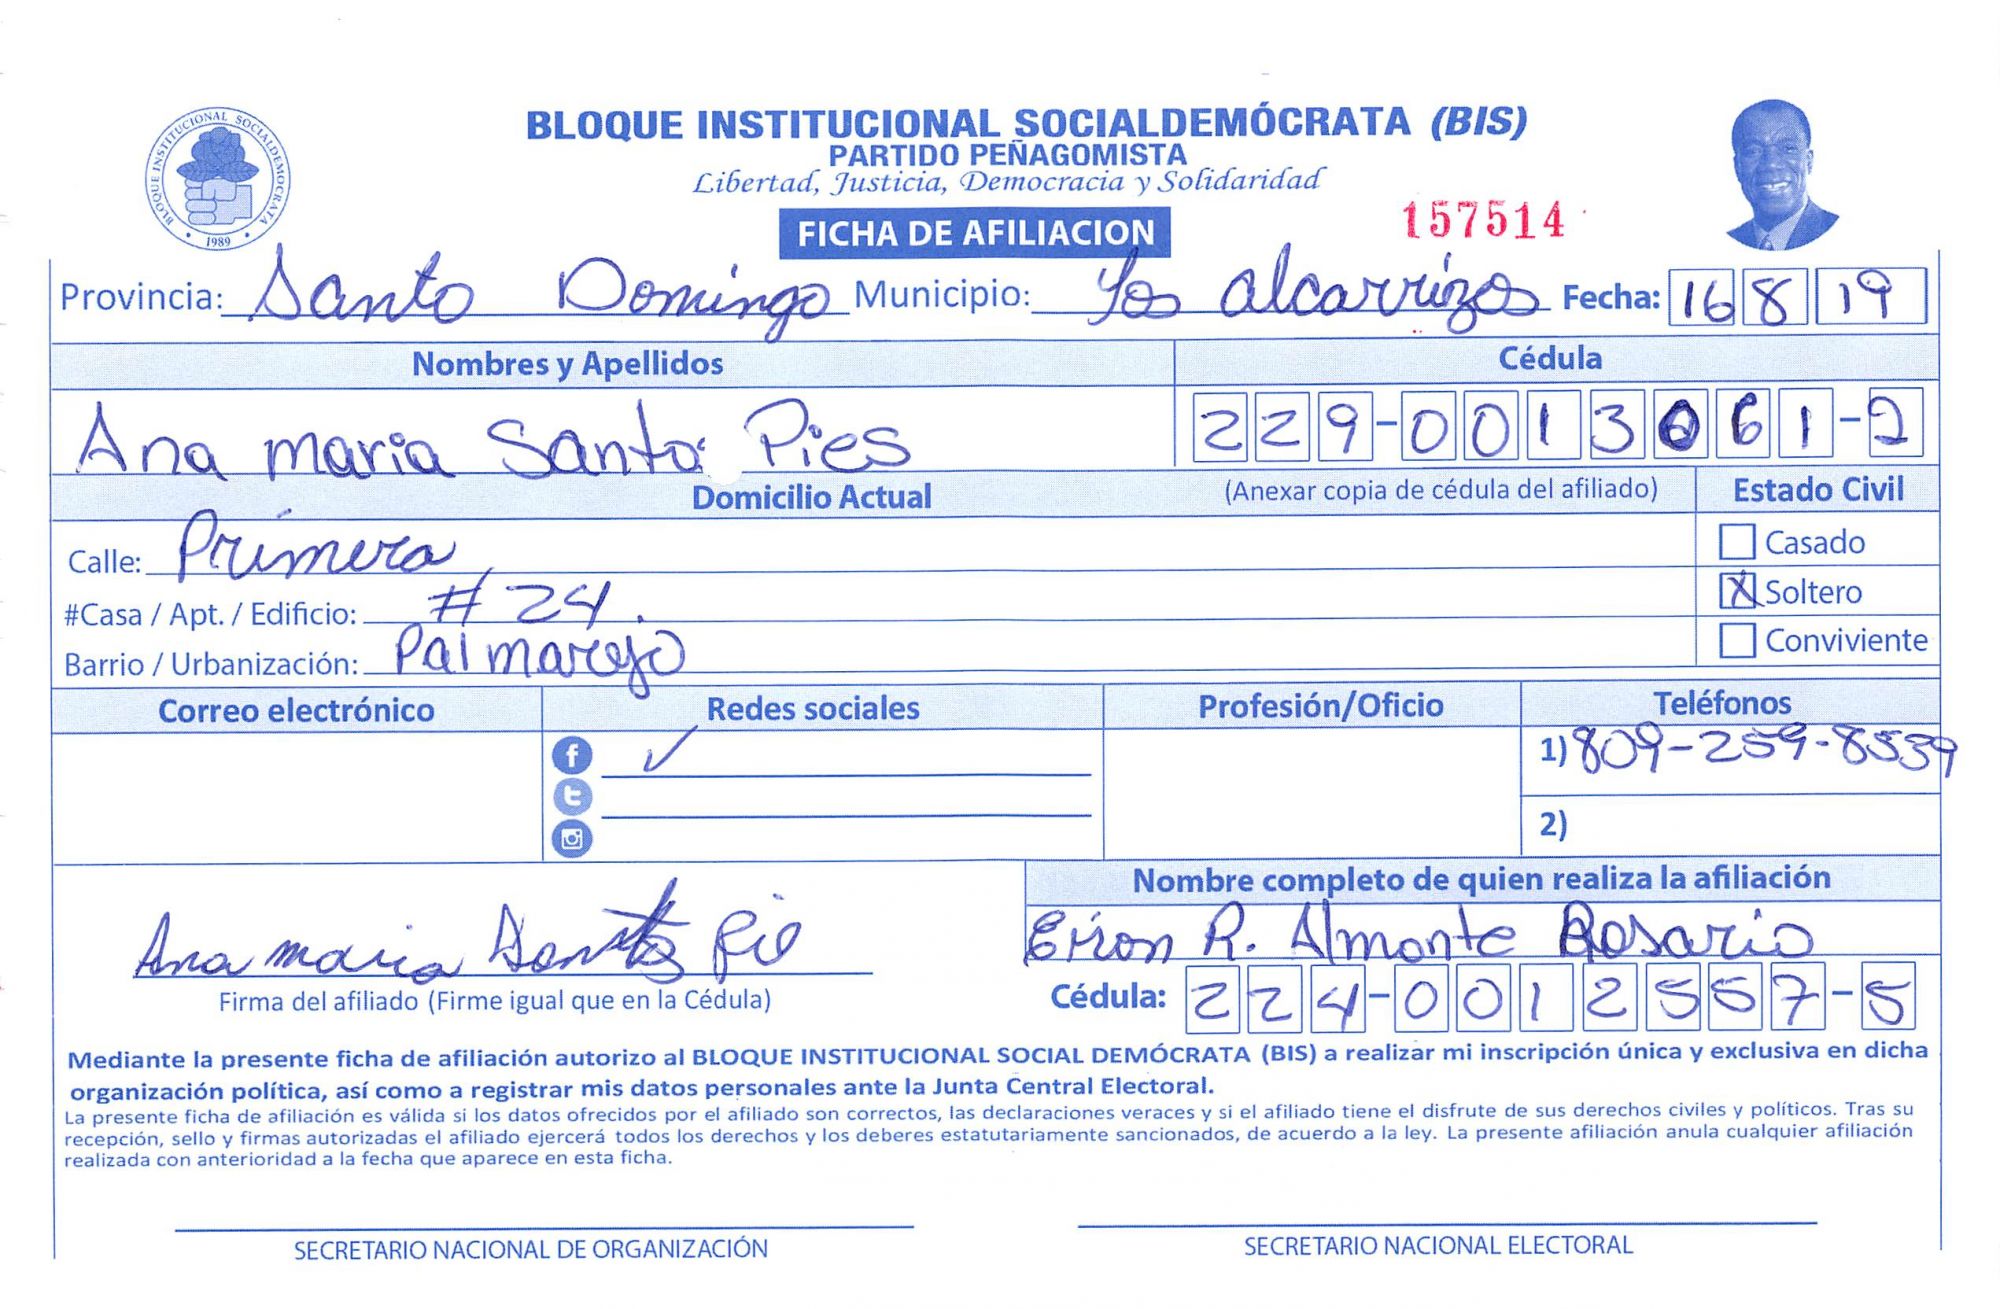 BLOQUE INSTITUCIONAL SOCIALDEMOCRATA
1989
BLOQUE INSTITUCIONAL SOCIALDEMÓCRATA (BIS)
PARTIDO PEÑAGOMISTA
Libertad, Justicia, Democracia y Solidaridad
FICHA DE AFILIACION
157514
Provincia: Santo Domingo Municipio: Los alcarrizos Fecha: 16 8 19
Nombres y Apellidos Cédula
Ana maria Santo Pies 229-0013061-2
Domicilio Actual (Anexar copia de cédula del afiliado) Estado Civil
Calle: Primera
Casado
#Casa / Apt. / Edificio: #24.
X Soltero
Barrio / Urbanización: Palmarejo
Conviviente
Correo electrónico Redes sociales Profesión/Oficio Teléfonos
1) 809-259-8539
2)
Nombre completo de quien realiza la afiliación
R. Almonte Rosario
Ana maria Santo Pie
Firma del afiliado (Firme igual que en la Cédula)
Cédula: 224-0012557-5
Mediante la presente ficha de afiliación autorizo al BLOQUE INSTITUCIONAL SOCIAL DEMÓCRATA (BIS) a realizar mi inscripción única y exclusiva en dicha
organización política, así como a registrar mis datos personales ante la Junta Central Electoral.
La presente ficha de afiliación es válida si los datos ofrecidos por el afiliado son correctos, las declaraciones veraces y si el afiliado tiene el disfrute de sus derechos civiles y políticos. Tras su
recepción, sello y firmas autorizadas el afiliado ejercerá todos los derechos y los deberes estatutariamente sancionados, de acuerdo a la ley. La presente afiliación anula cualquier afiliación
realizada con anterioridad a la fecha que aparece en esta ficha.
SECRETARIO NACIONAL DE ORGANIZACIÓN
SECRETARIO NACIONAL ELECTORAL